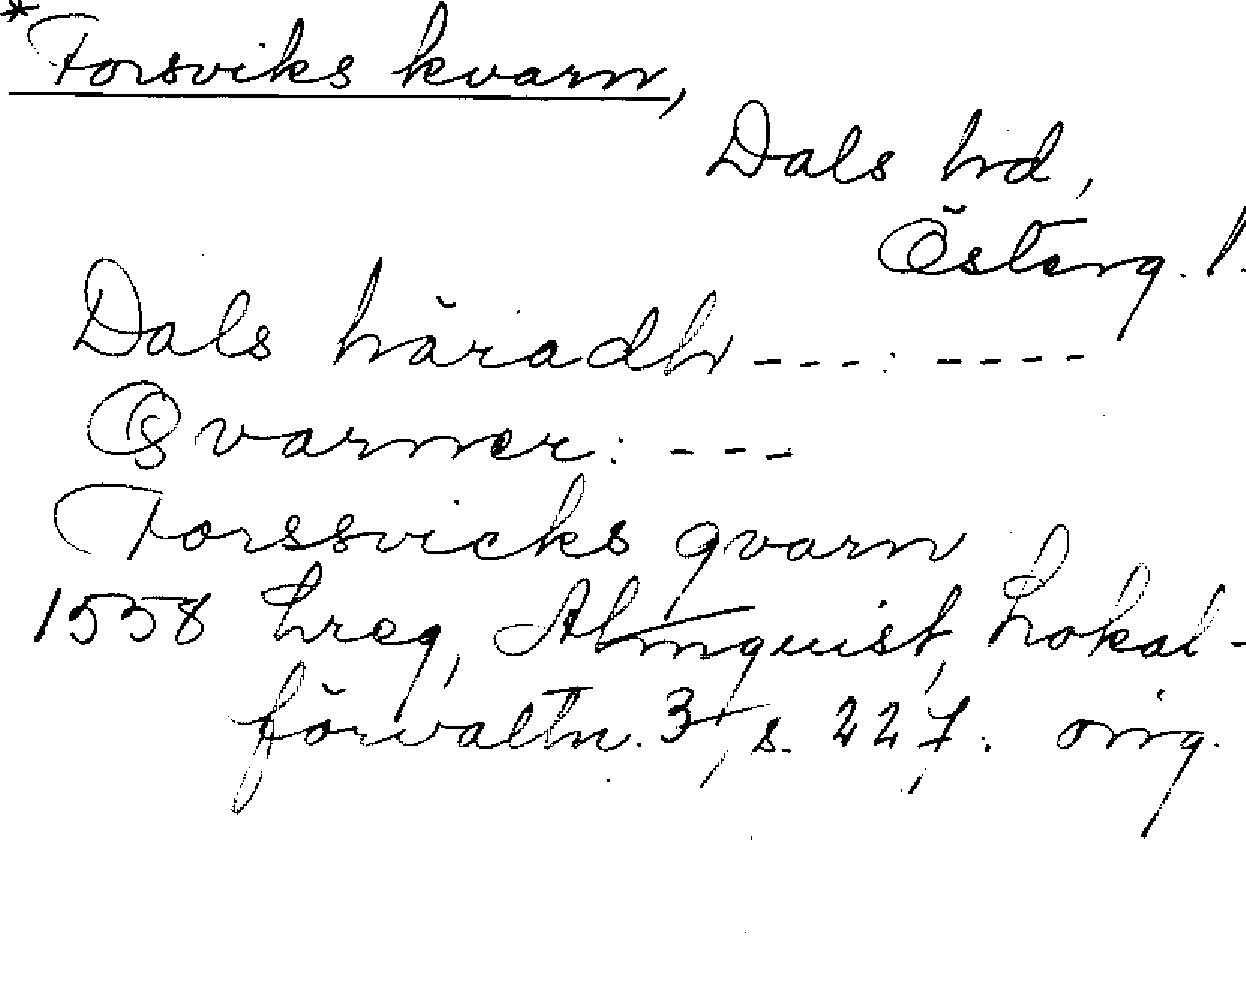 *Forsviks kvarn,
Dals hd,
Österg. l.
Dals häradh ---: ----
Qvarner: ---
Forssvicks qvarn
1558 Lreg, Almquist, Lokal-
förvaltn. 3, s. 227. orig.